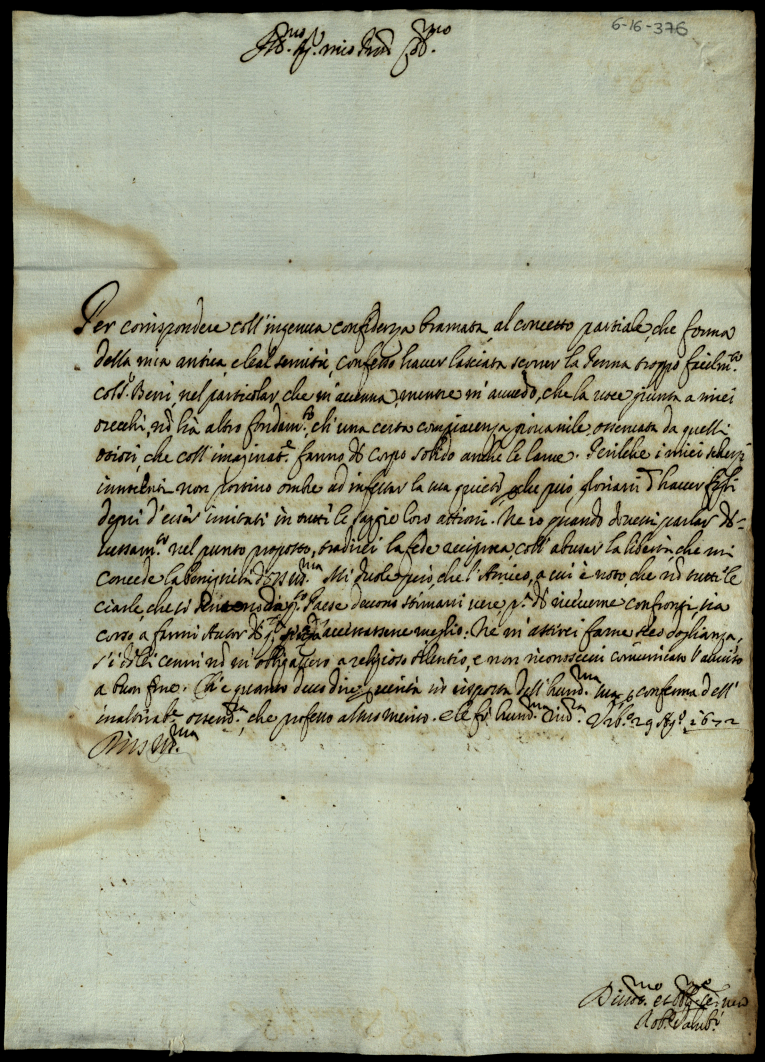 6-16-376
Ill.mo Sig. mio
Per corrispondere coll'ingenua confidenza bramata, al concetto partiale, che forma
della mia antica, e leal servitù, confesso haver lasciata scorrer la penna troppo facilm.te
col S. Berni, nel particolar che m'accenna, mentre m'avvedo, che la voce giunta a miei
orecchi, nõ hà altro fondam.to, ch'una certa compiacenza giovanile, osservata da quelli
otiosi, che coll'imaginat.e fanno di corpo solido anche le larve. Perilche i miei
non portino ombre ad infettar la sua quiete, che può gloriarsi d'haver figli
degni d'esser imitati in tutte le saggie loro attioni. Ne io quando dovessi parlar
nel punto proposto, tradirei la fede reciproca coll'abusar la libertà, che mi
concede la benignità di V.S. Ill.ma Mi duole però, che l'Amico, a cui è noto, che nõ tutte le
ciarle, che si Paese devono stimarsi vere p.a di riceverne confronti, sia
corso, a farmi Autor di accertarsene meglio. Ne m'asterrei farne seco doglianza,
s'i di Lei cenni nõ m'obbligassero a religioso silentio, e non riconoscessi comunicato l'avviso
a buon fine. Ch'è quanto devo dire in risposta dell'hum.ma sua, e confirma dell'
inalterab.e osserv.a, che professo al suo merito. e le fò hum.ma riv.a Urb.o 29 Ag.o 1672
Di V.S. Ill.ma
Devot.mo et Obblig.mo Ser.re vero